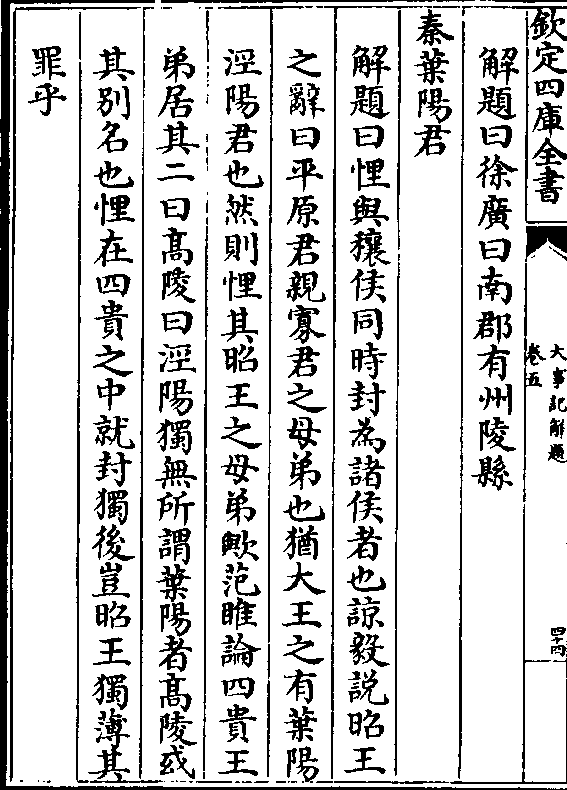 欽定四庫全書
大事記解題
卷五
四十四
解題曰徐廣曰南郡有州陵縣
秦葉陽君
解題曰悝與穰侯同時封為諸侯者也諒毅説昭王
之辭曰平原君親寡君之母弟也猶大王之有葉陽
涇陽君也然則悝其昭王之母弟歟范睢論四貴王
弟居其二曰髙陵曰涇陽獨無所謂葉陽者髙陵或
其别名也悝在四貴之中就封獨後豈昭王獨薄其
罪乎